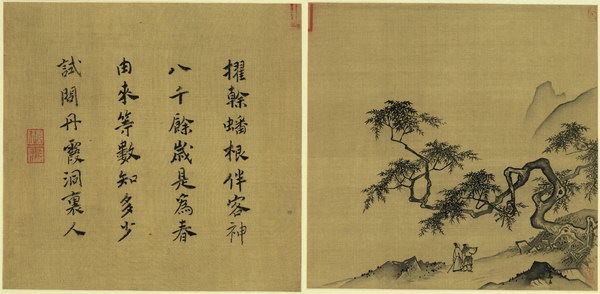 擢榦蟠根伴客神
八千餘歲是爲春
由來等數知多少
試問丹霞洞裏人